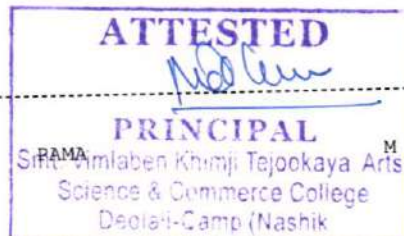 ATTESTED
PRINCIPAL
Smt. Vimlaben Khimji Tejookaya Arts
RAMA M
Science & Commerce College
Deolali-Camp (Nashik